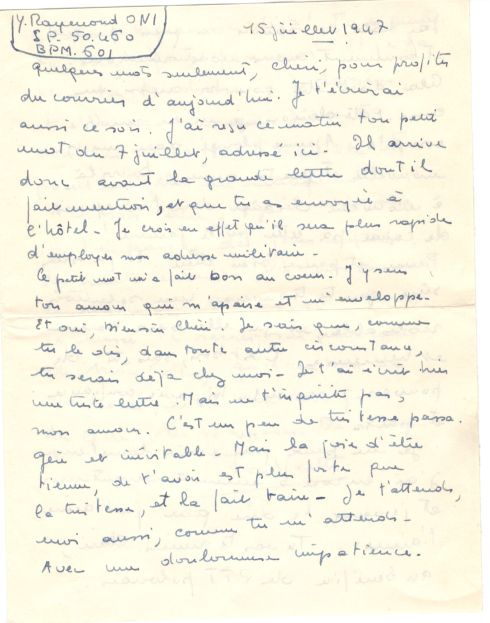 Y. Raymond ONI
SP. 50.450
BPM. 501
15 juillet 1947
quelques mots seulement, chéri, pour profiter
du courrier d'aujourd'hui. Je t'écrirai
aussi ce soir. J'ai reçu ce matin ton petit
mot du 7 juillet, adressé ici. Il arrive
donc avant la grande lettre dont il
fait mention, et que tu as envoyée à
l'hôtel. Je crois en effet qu'il sera plus rapide
d'employer mon adresse militaire.
Ce petit mot m'a fait bon au coeur. J'y sens
ton amour qui m'apaise et m'enveloppe.
Et oui, bien sûr chéri. Je sais que, comme
tu le dis, dans toute autre circonstance,
tu serais déjà chez moi. Je t'ai écrit hier
une triste lettre. Mais ne t'inquiète pas,
mon amour. C'est un peu de tristesse passa-
gère et inévitable. Mais la joie d'être
tienne, de t'avoir est plus forte que
la tristesse, et la fait taire. Je t'attends,
moi aussi, comme tu m'attends.
Avec une douloureuse impatience.